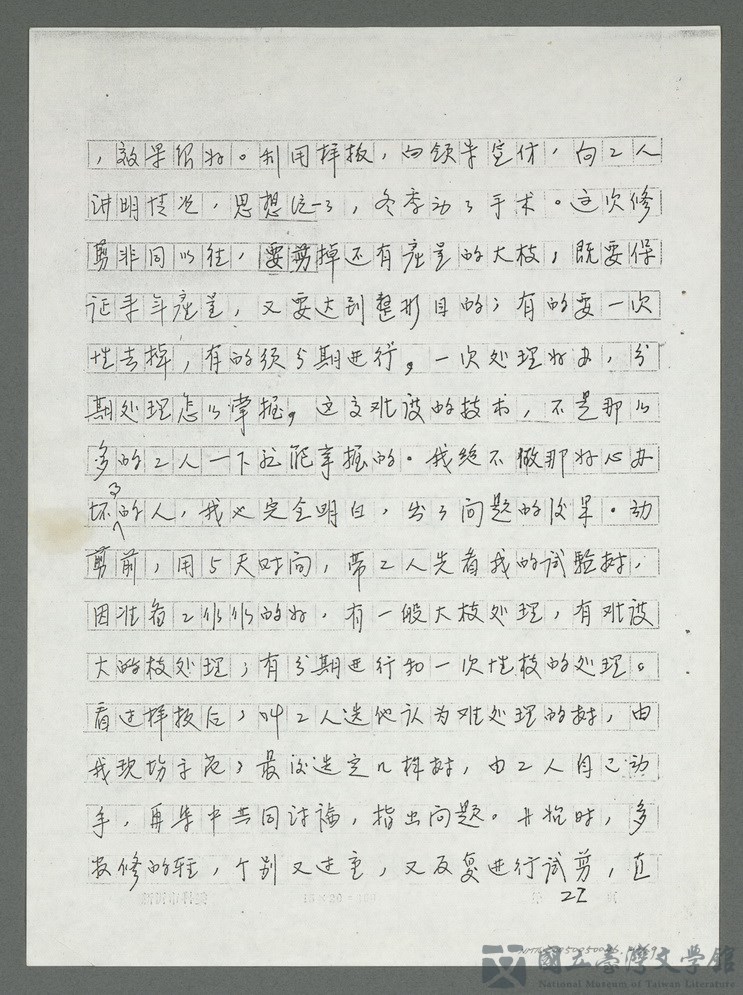 ，效果很好。利用样板，向领导宣传，向工人
讲明情况，思想统一了，冬季动了手术。这次修
剪非同以往，要剪掉还有產量的大枝，既要保
证来年產量，又要达到整形目的；有的要一次
性去掉，有的须分期进行。一次处理好办，分
期处理怎么掌握。这交难度的技术，不是那么
多的工人一下就能掌握的。我绝不做那好心办
坏了的人，我也完全明白，出了问题的後果。动
剪前，用5天时间，带工人先看我的试验树，
因准备工作作的好，有一般大枝处理，有难度
大的枝处理；有分期进行和一次性枝的处理。
看过样板后，叫工人选他认为难处理的树，由
我现场示范；最後选定几株树，由工人自己动
手，再集中共同讨論，指出问题。开始时，多
数修的轻，个别又过重，又反复进行试剪，直
22
國立臺灣文學館
National Museum of Taiwan Literature